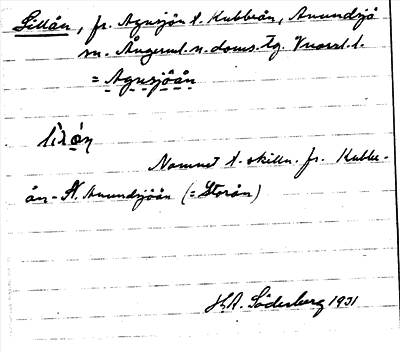 Lillån, fr. Agnsjön t. Kubbeån, Anundsjö
sn. Ångerml. n. doms. tg. Vnorrl. l.
= Agnsjöån
Namnet t. skilln. fr. Kubbe-
ån - Anundsjöån (= Storån)
H.A. Söderberg 1931